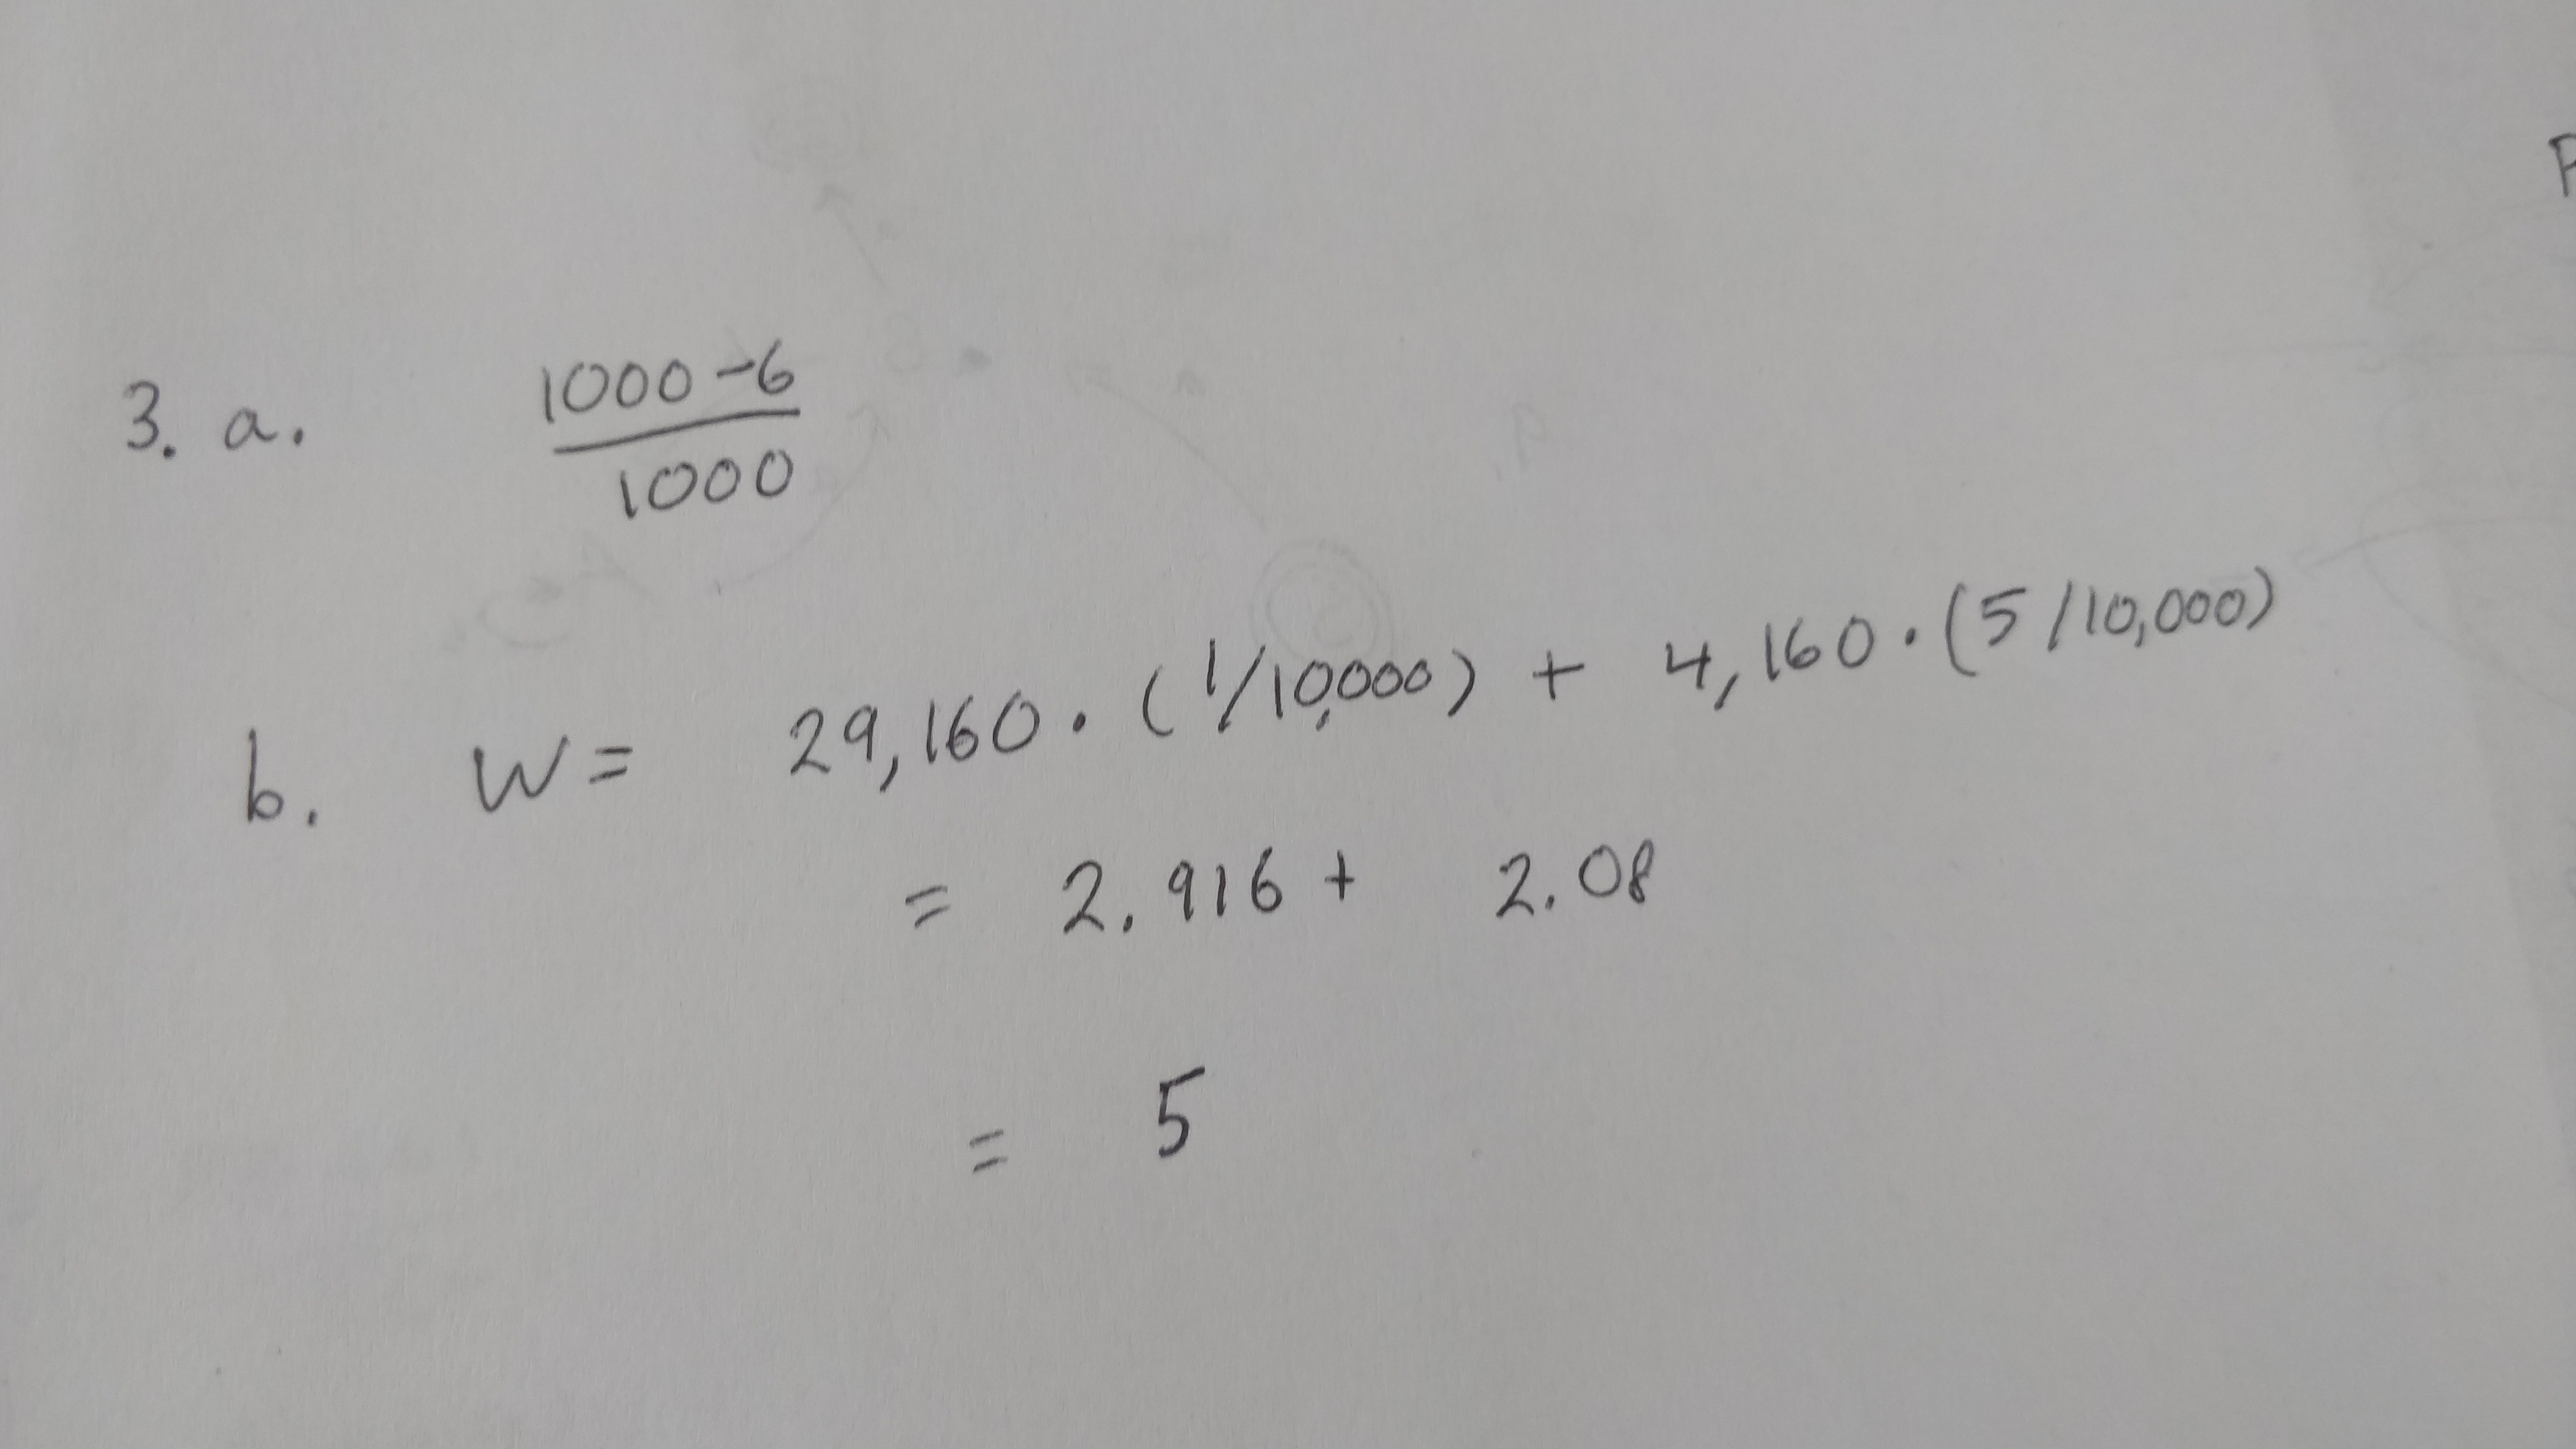 3. a. 1000-6
1000
b. W = 29,160 · (1/10,000) + 4,160 · (5/10,000)
= 2.916 + 2.08
= 5